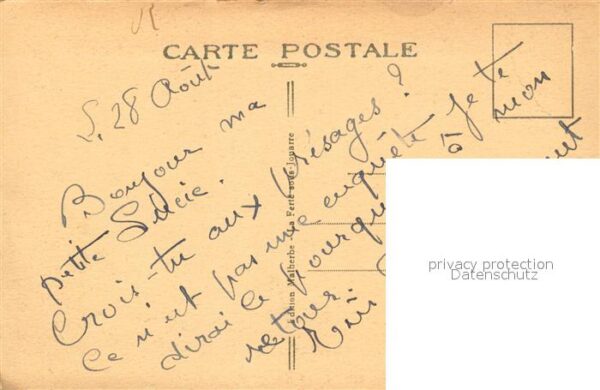 CARTE POSTALE
28 Août
Bonjour ma
petite Lucie.
Crois-tu aux présages ?
Ce n'est pas une enquête je te
dirai le pourquoi à mon
retour.
Edition Malherbe - La Ferté-sous-Jouarre
privacy protection
Datenschutz